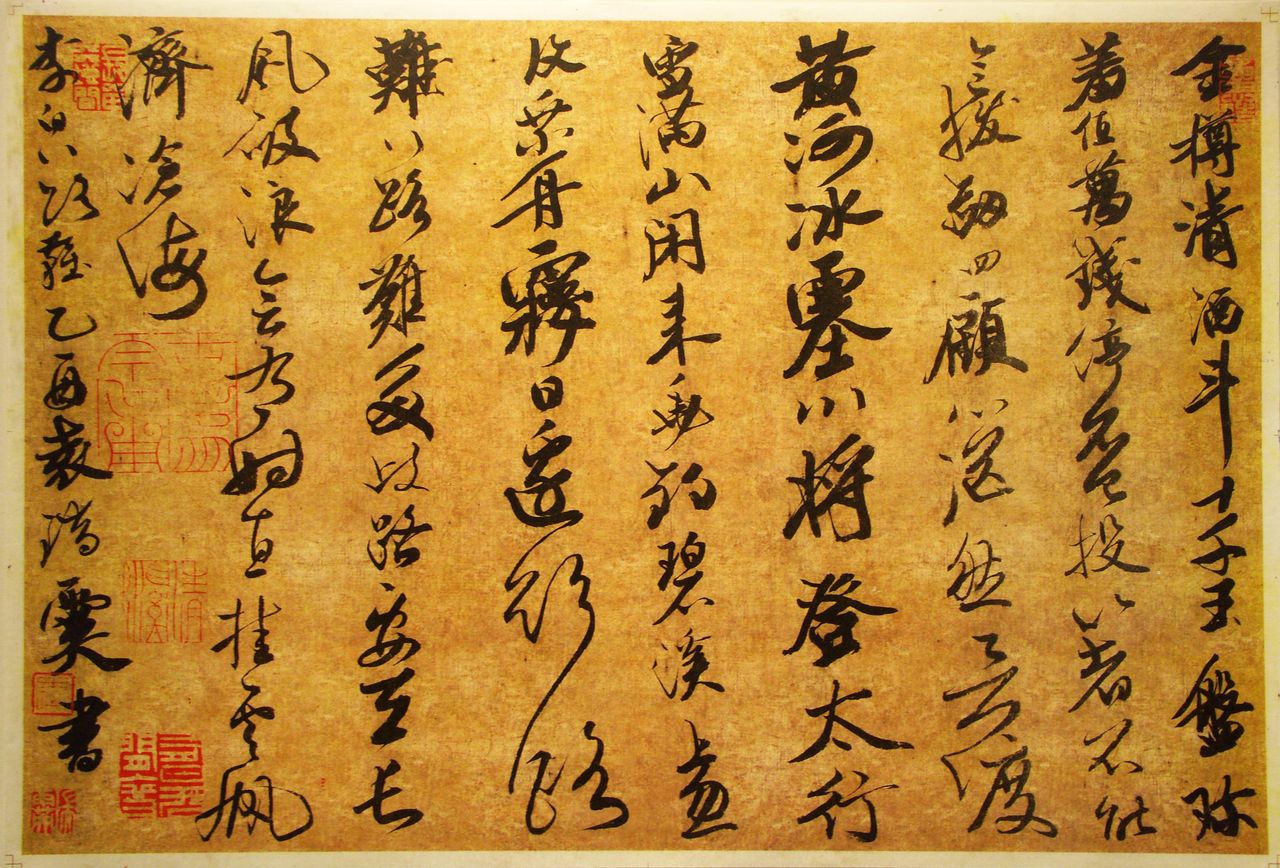 金樽清酒斗十千玉盤珍
羞值萬錢停盃投箸不能
食拔劍四顧心茫然欲渡
黃河冰塞川將登太行
雪滿山閑來垂釣碧溪上忽
復乘舟夢日邊行路
難行路難多歧路安在長
風破浪會有時直挂雲帆
濟滄海
李白行路難乙酉袁瑞書